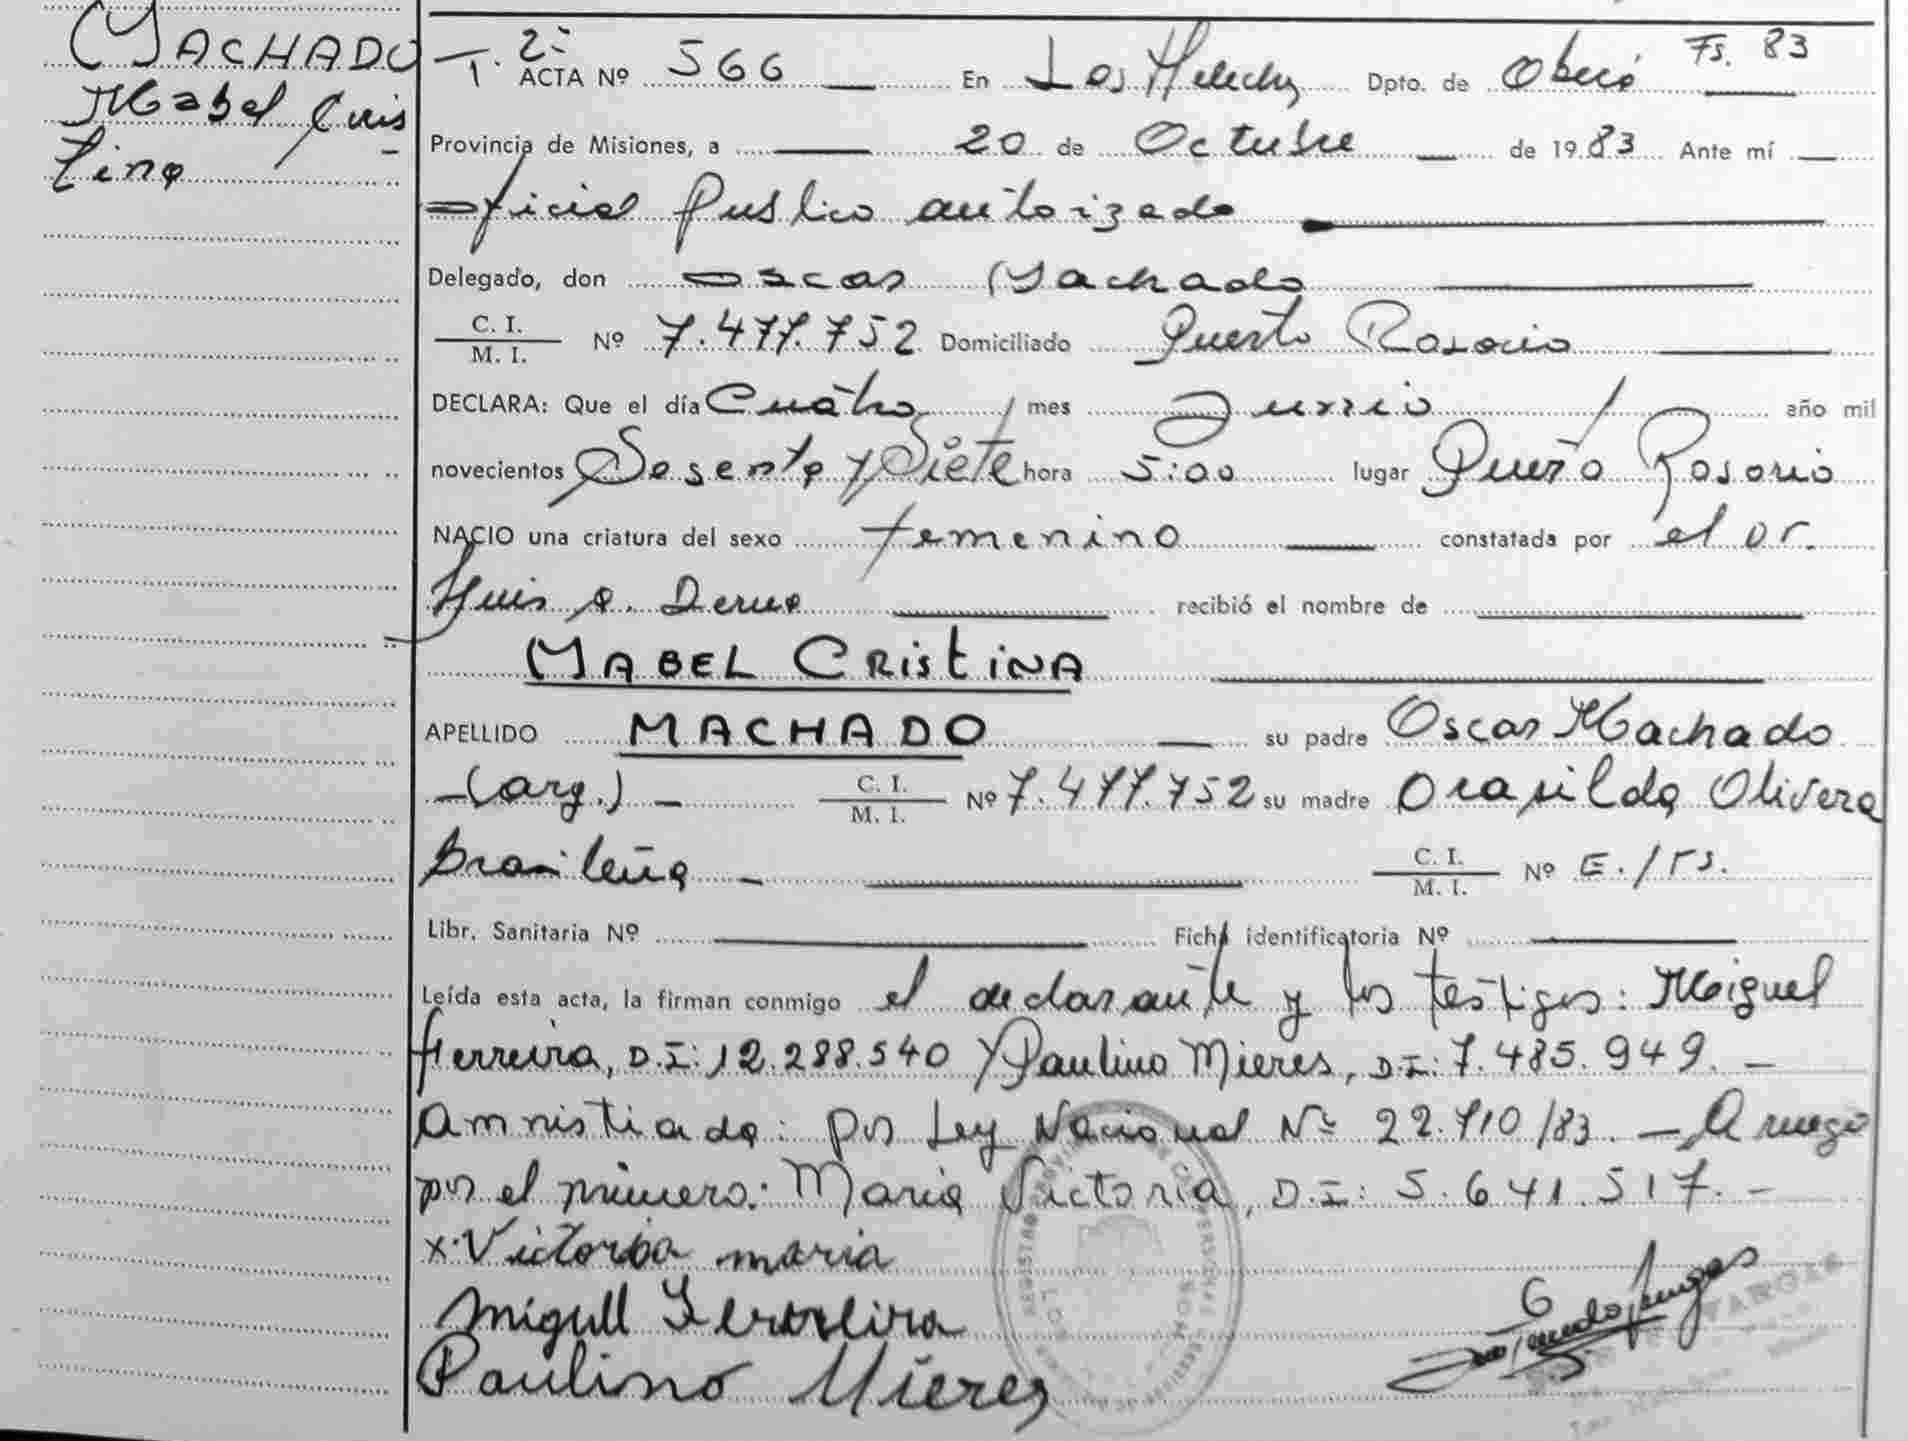 MACHADO
Mabel Cris
tina
T. 2º ACTA Nº 566 En Los Helechos Dpto. de Oberá Fs. 83
Provincia de Misiones, a 20 de Octubre de 1983 Ante mí
oficial Publico autorizado
Delegado, don Oscar Machado
C. I.
M. I. Nº 7.477.752 Domiciliado Puerto Rosario
DECLARA: Que el día Cuatro mes Junio año mil
novecientos Sesenta y Siete hora 5:00 lugar Puerto Rosario
NACIO una criatura del sexo femenino constatada por el Dr.
Luis A. recibió el nombre de
MABEL CRISTINA
APELLIDO MACHADO su padre Oscar Machado
-(arg.)- C. I.
M. I. Nº 7.477.752 su madre Orasilda Olivera
Brasileña - C. I.
M. I. Nº E./Ts.
Libr. Sanitaria Nº Ficha identificatoria Nº
Leída esta acta, la firman conmigo el declarante y los testigos: Miguel
Ferreira, D.I: 12.288.540 y Paulino Mieres, D.I: 7.485.949. -
Amnistiada: por Ley Nacional Nº 22.710/83. - A ruego
por el primero: Maria Victoria, D.I: 5.641.517. -
x. Victoria maria
Miguel Ferreira
Paulino Mieres
VARGAS